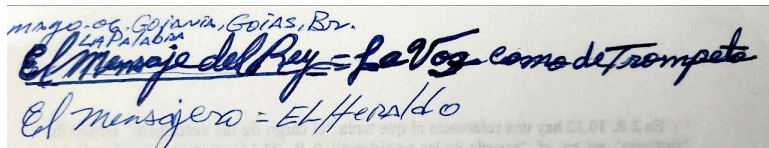 mayo. 06. Goiania, Goias, Br.
LA PALABRA
El Mensaje del Rey = La Voz como de Trompeta
El Mensajero = EL HERALDO